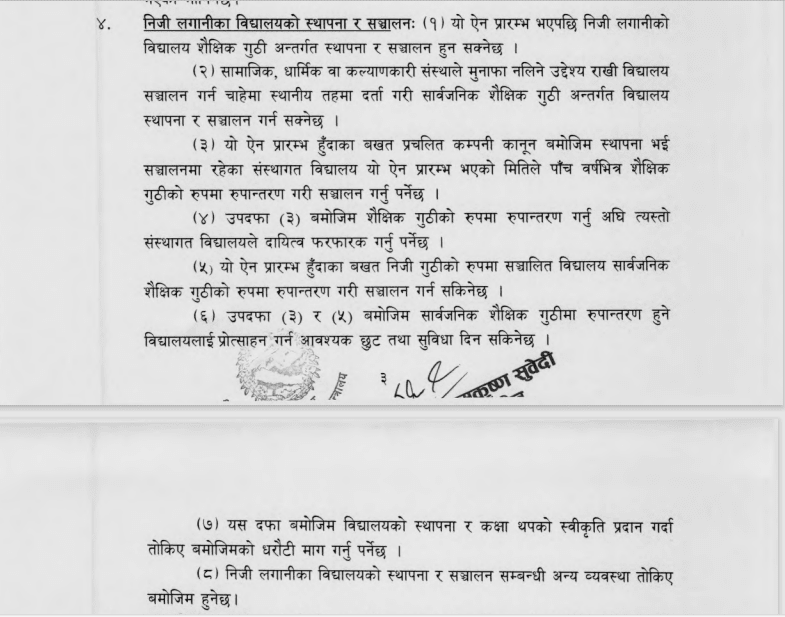 ४. निजी लगानीका विद्यालयको स्थापना र सञ्चालनः (१) यो ऐन प्रारम्भ भएपछि निजी लगानीको
विद्यालय शैक्षिक गुठी अन्तर्गत स्थापना र सञ्चालन हुन सक्नेछ ।
(२) सामाजिक, धार्मिक वा कल्याणकारी संस्थाले मुनाफा नलिने उद्देश्य राखी विद्यालय
सञ्चालन गर्न चाहेमा स्थानीय तहमा दर्ता गरी सार्वजनिक शैक्षिक गुठी अन्तर्गत विद्यालय
स्थापना र सञ्चालन गर्न सक्नेछ ।
(३) यो ऐन प्रारम्भ हुँदाका बखत प्रचलित कम्पनी कानून बमोजिम स्थापना भई
सञ्चालनमा रहेका संस्थागत विद्यालय यो ऐन प्रारम्भ भएको मितिले पाँच वर्षभित्र शैक्षिक
गुठीको रुपमा रुपान्तरण गरी सञ्चालन गर्नु पर्नेछ ।
(४) उपदफा (३) बमोजिम शैक्षिक गुठीको रुपमा रुपान्तरण गर्नु अघि त्यस्तो
संस्थागत विद्यालयले दायित्व फरफारक गर्नु पर्नेछ ।
(५) यो ऐन प्रारम्भ हुँदाका बखत निजी गुठीको रुपमा सञ्चालित विद्यालय सार्वजनिक
शैक्षिक गुठीको रुपमा रुपान्तरण गरी सञ्चालन गर्न सकिनेछ ।
(६) उपदफा (३) र (५) बमोजिम सार्वजनिक शैक्षिक गुठीमा रुपान्तरण हुने
विद्यालयलाई प्रोत्साहन गर्न आवश्यक छुट तथा सुविधा दिन सकिनेछ ।
३
सुवेदी
(७) यस दफा बमोजिम विद्यालयको स्थापना र कक्षा थपको स्वीकृति प्रदान गर्दा
तोकिए बमोजिमको धरौटी माग गर्नु पर्नेछ ।
(८) निजी लगानीका विद्यालयको स्थापना र सञ्चालन सम्बन्धी अन्य व्यवस्था तोकिए
बमोजिम हुनेछ।